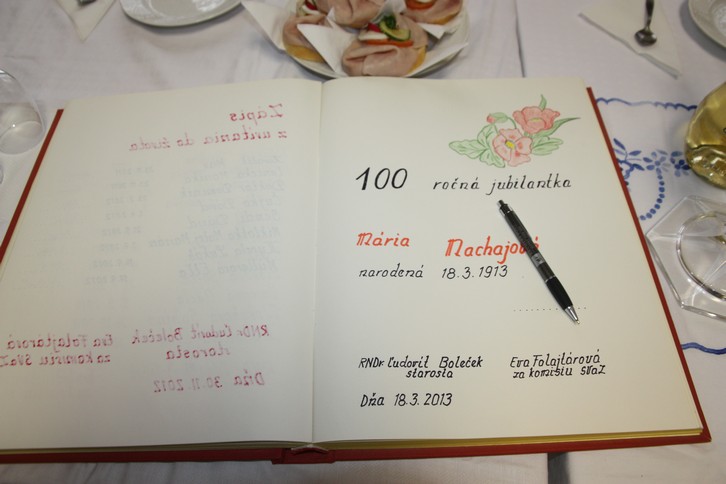 Zápis
z uvítania do života
RNDr Ľudovít Boleček Eva Folajtárová
starosta za komisiu SVaZ
Dňa 30.11.2012
100 ročná jubilantka
Mária Machajová
narodená 18.3.1913
RNDr Ľudovít Boleček Eva Folajtárová
starosta za komisiu SVaZ
Dňa 18.3.2013